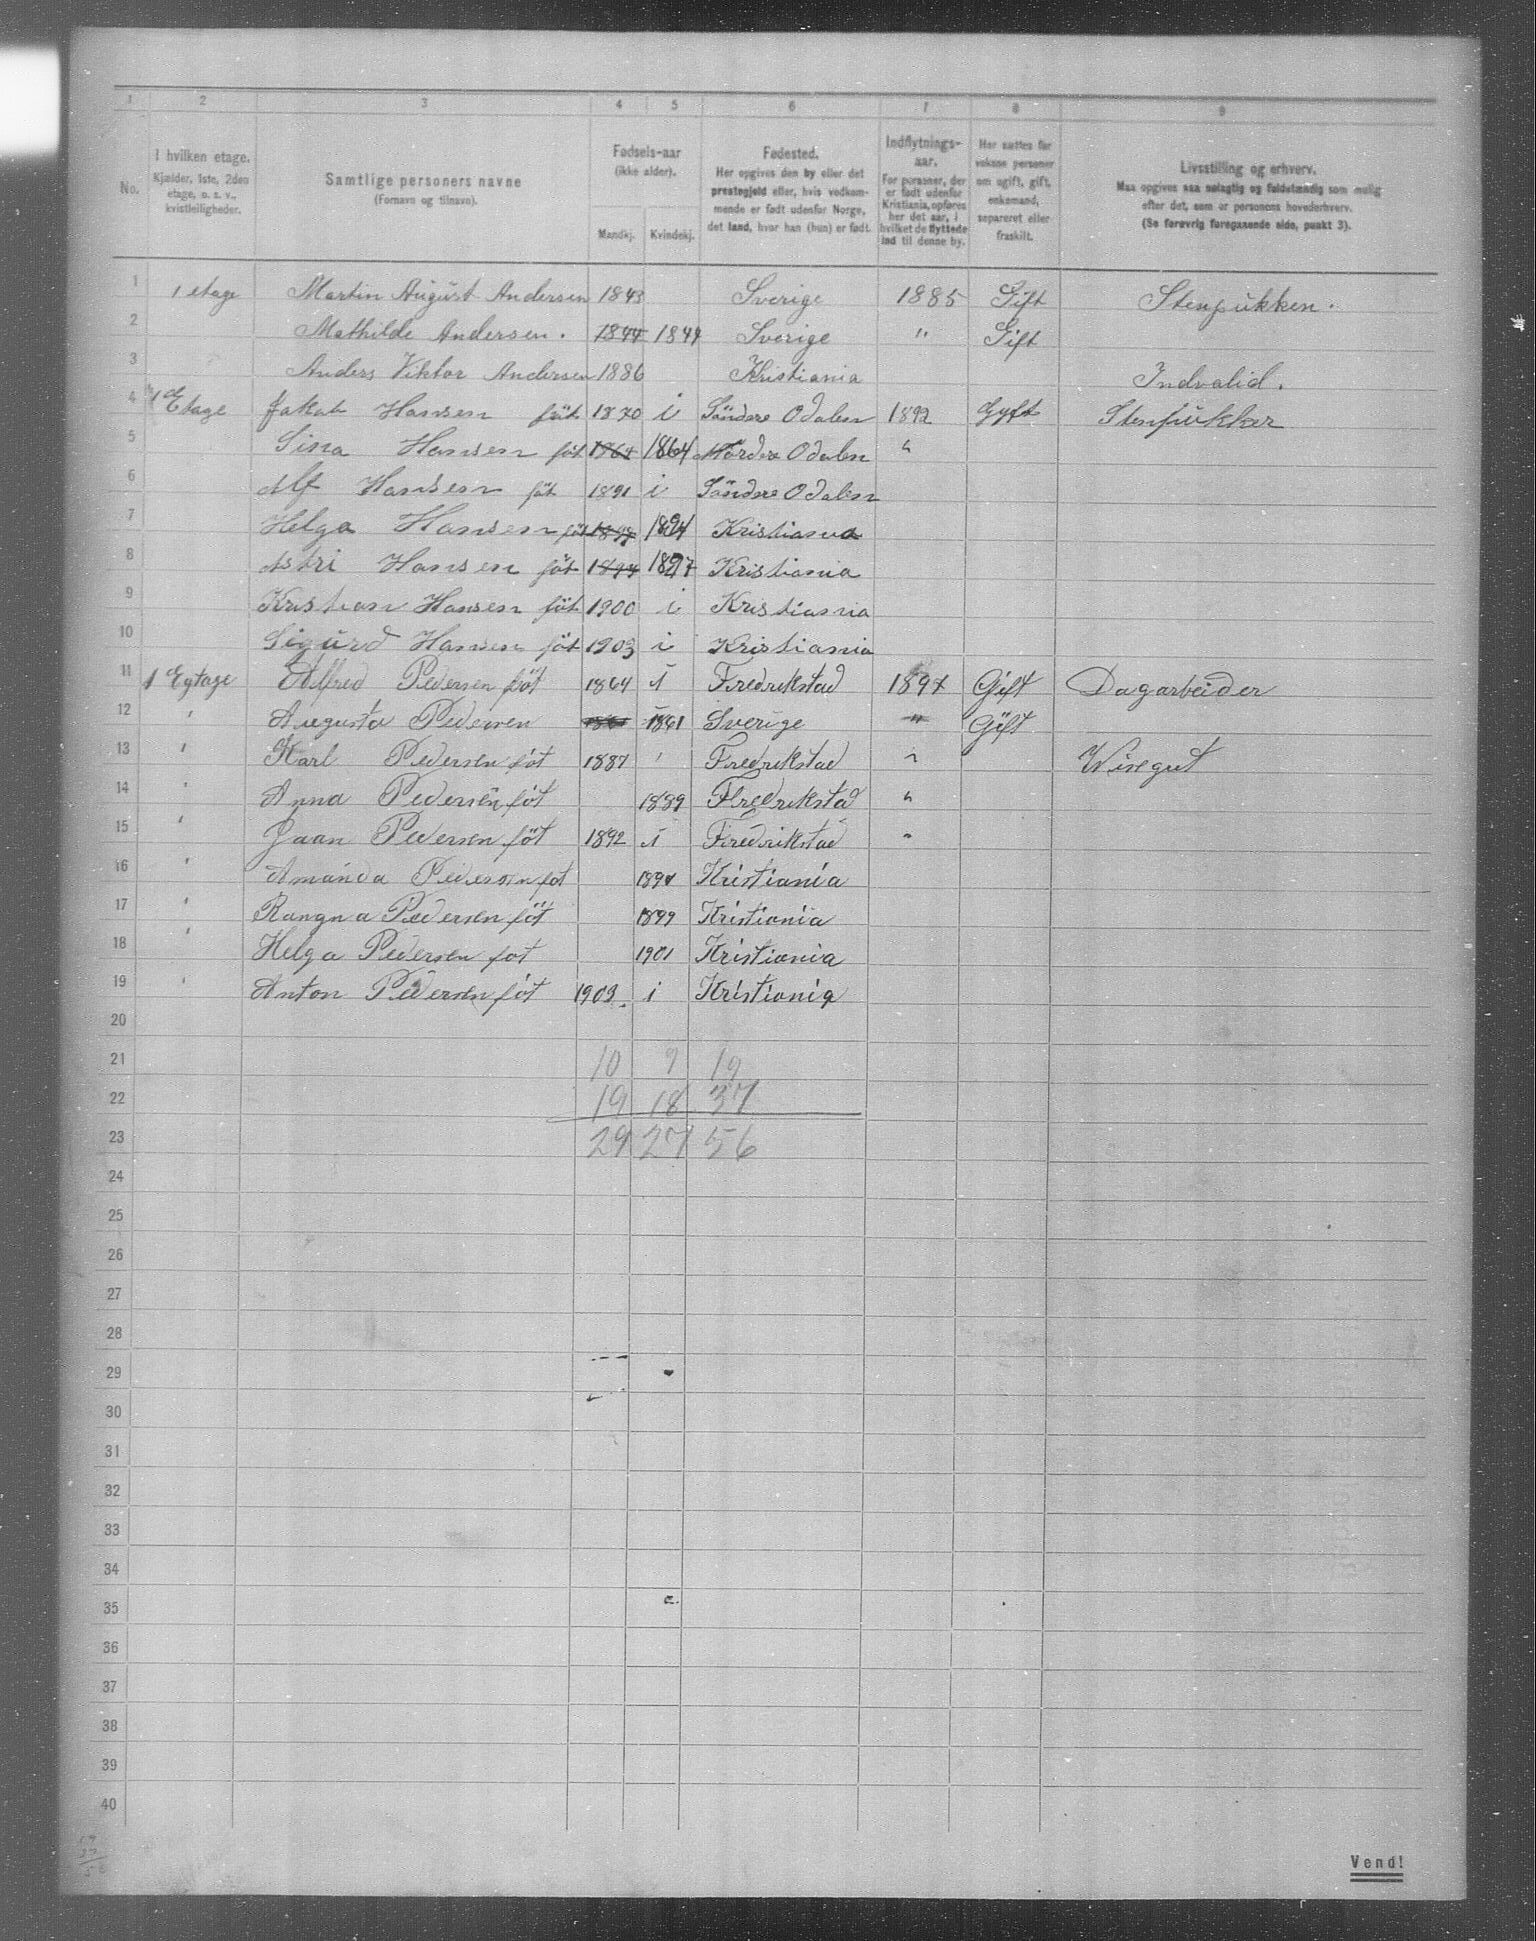 1 2 3 4 5 6 7 8 9
No.
I hvilken etage.
Kjælder, 1ste, 2den
etage, o. s. v.,
kvistleiligheder.
Samtlige personers navne
(Fornavn og tilnavn).
Fødsels-aar
(ikke alder).
Mandkj. Kvindekj.
Fødested.
Her opgives den by eller det
prestegjeld eller, hvis vedkom-
mende er født udenfor Norge,
det land, hvor han (hun) er født.
Indflytnings-
aar.
For personer, der
er født udenfor
Kristiania, opføres
her det aar, i
hvilket de flyttede
ind til denne by.
Her sættes for
voksne personer
om ugift, gift,
enkemand,
separeret eller
fraskilt.
Livsstilling og erhverv.
Maa opgives saa nøiagtig og fuldstændig som mulig
efter det, som er personens hovederhverv.
(Se forøvrig foregaaende side, punkt 3).
1 1 etage Martin August Andersen 1843 Sverige 1885 Gift Stenpukken.
2 Mathilde Andersen. 1844 1844 Sverige " Gift
3 Anders Viktor Andersen 1886 Kristiania Indvalid.
4 1 Etage Jakab Hansen föt 1870 i Söndre Odalen 1892 Gyft Stenpukker
5 Sina Hansen föt 1864 1864 Nordre Odalen "
6 Alf Hansen föt 1891 i Söndre Odalen
7 Helga Hansen föt 1894 Kristiania
8 Astri Hansen föt 1897 1897 Kristiania
9 Kristian Hansen föt 1900 i Kristiania
10 Sigurd Hansen föt 1903 i Kristiania
11 1 Egtage Alfred Pedersen föt 1864 i Fredrikstad 1894 Gift Dagarbeider
12 ' Augusta Pedersen 1861 1861 Sverige " Gift
13 ' Karl Pedersen föt 1887 ' Fredrikstad " Wisegut
14 ' Anna Pedersen föt 1889 Fredrikstad "
15 ' Jaan Pedersen föt 1892 i Fredrikstad "
16 ' Amanda Pedersen föt Kristiania
17 ' Rangna Pedersen föt 1899 Kristiania
18 ' Helga Pedersen föt 1901 Kristiania
19 ' Anton Pedersen föt 1903. i Kristiania
20
21 10 9 19
22 19 18 37
23 29 27 56
24
25
26
27
28
29
30
31
32
33
34
35
36
37
38
39
40
19
37
56
Vend!